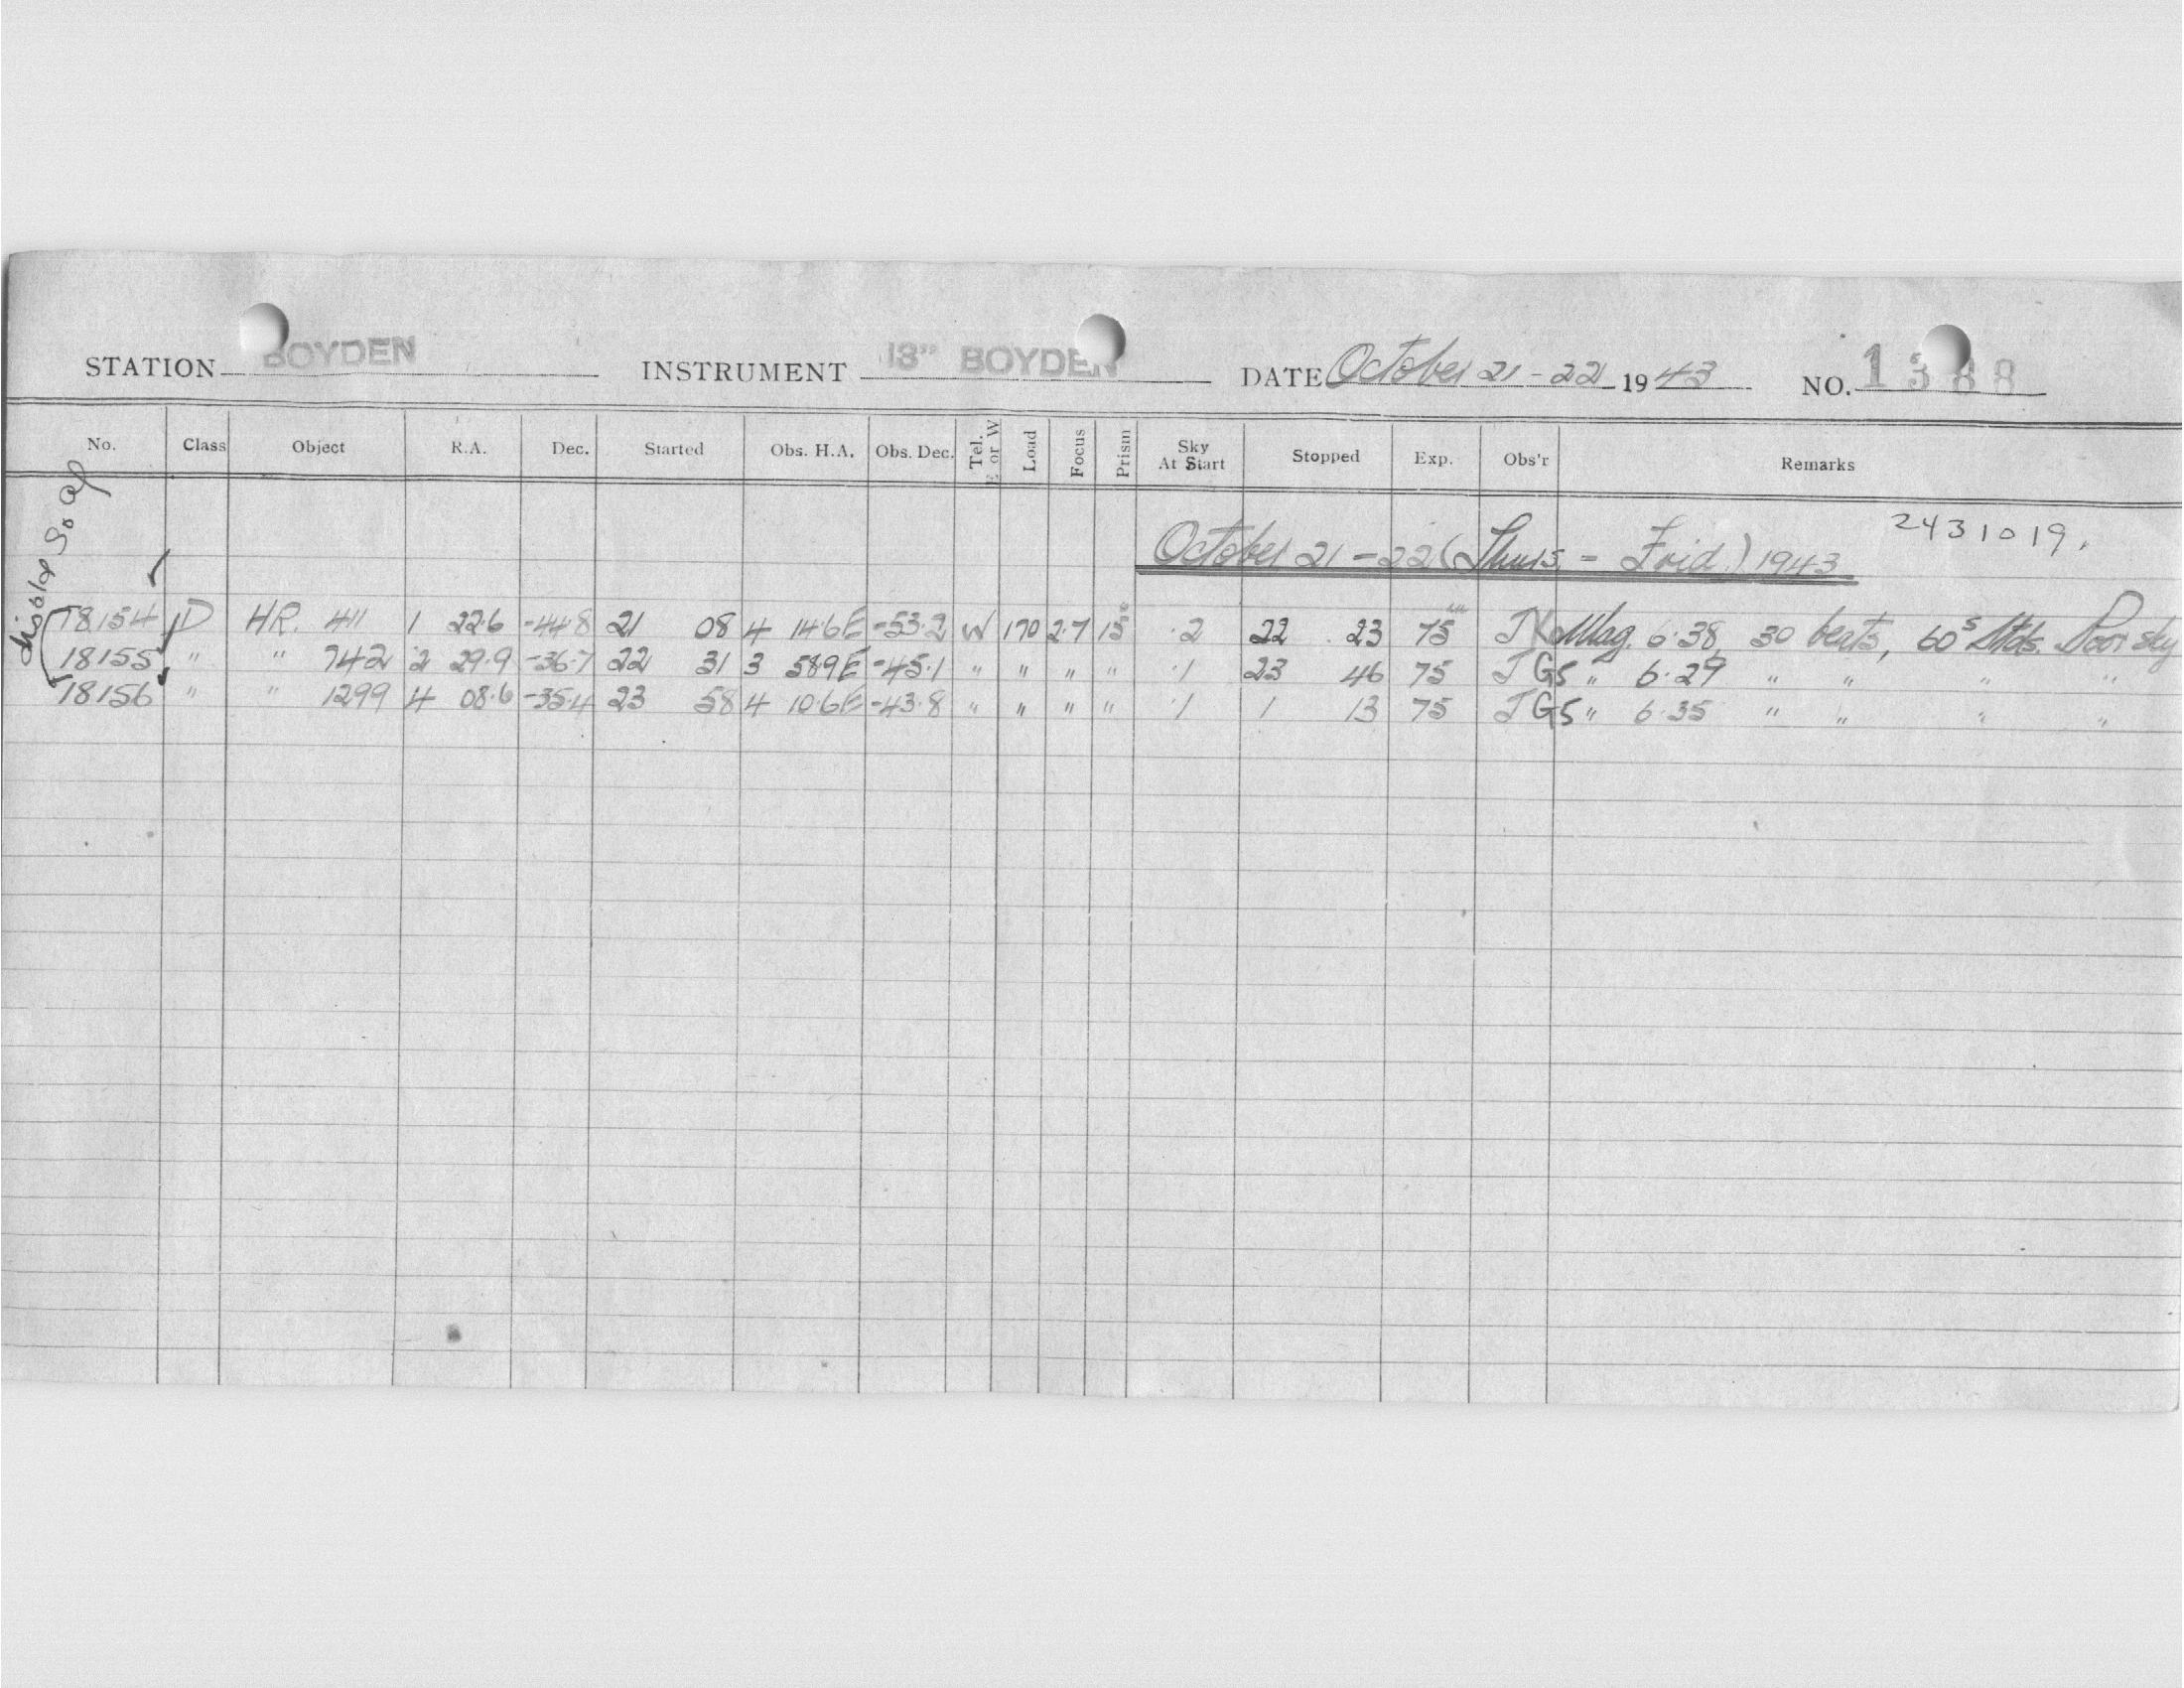 STATION BOYDEN INSTRUMENT 13" BOYDEN DATE October 21-22 1943 NO. 1388
No. Class Object R.A. Dec. Started Obs. H.A. Obs. Dec. Tel. E or W Load Focus Prism Sky At Start Stopped Exp. Obs'r Remarks
2431019.
October 21-22 (Thurs. - Frid.) 1943
18154 D HR. 411 1 22.6 -44.8 21 08 4 14.6E -53.2 W 170 2.7 15° .2 22 23 75 JK Mag. 6.38, 30 beats, 60s Stds. Poor sky
18155 " " 742 2 29.9 -36.7 22 31 3 58.9E -45.1 " " " " .1 23 46 75 J G5 " 6.29 " " " "
18156 " " 1299 4 08.6 -35.4 23 58 4 10.6E -43.8 " " " " .1 1 13 75 J G5 " 6.35 " " " "